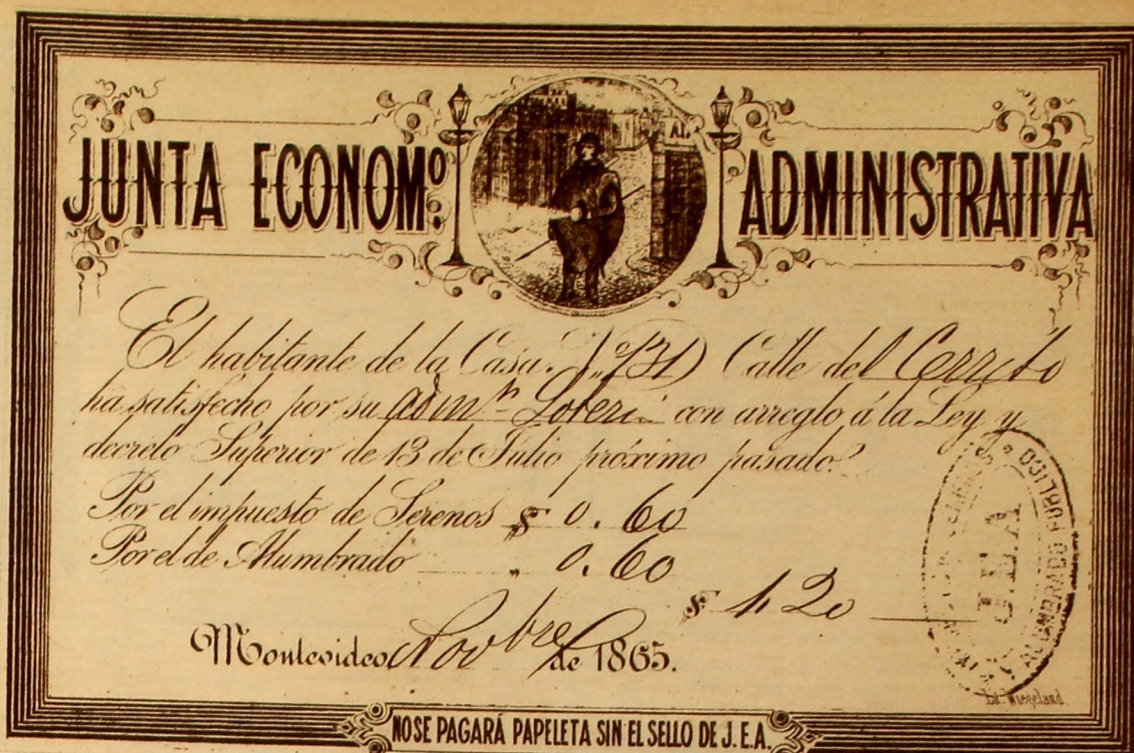 JUNTA ECONOMº. ADMINISTRATIVA
El habitante de la Casa Nº 131 Calle del Cerrito
ha satisfecho por su con arreglo á la Ley y
decreto Superior de 13 de Julio próximo pasado.
Por el impuesto de Serenos $ 0.60
Por el de Alumbrado „ 0.60
$ 1.20
Montevideo Novbre de 1865.
ALUMBRADO PUBLICO
J.E.A
Lit. Wiegeland
NO SE PAGARÁ PAPELETA SIN EL SELLO DE J.E.A.